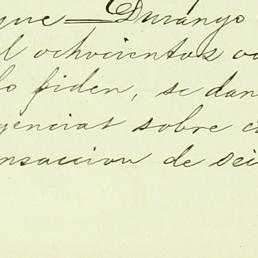 que — Durango
l ochocientos oc
lo piden, se dan
genciat sobre c
nsaccion de sei